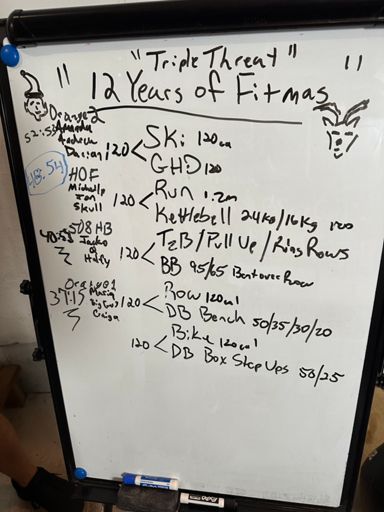 "Triple Threat"
" 12 Years of Fitmas "
Orange 2
52:53
Amanda
Andrew
120 < Ski 120 cal
GHD 120
48:54
HOF
Michelle
Ian
Skull
120 < Run 1.2m
Kettlebell 24kg/16kg 120
508 HB
Jacko
Holly
120 < T2B/Pull Up/Ring Rows
BB 95/65 Bent over Row
37:15
Maria
Craig
120 < Row 120 cal
DB Bench 50/35/30/20
120 < Bike 120 cal
DB Box Step Ups 50/25
EXPO